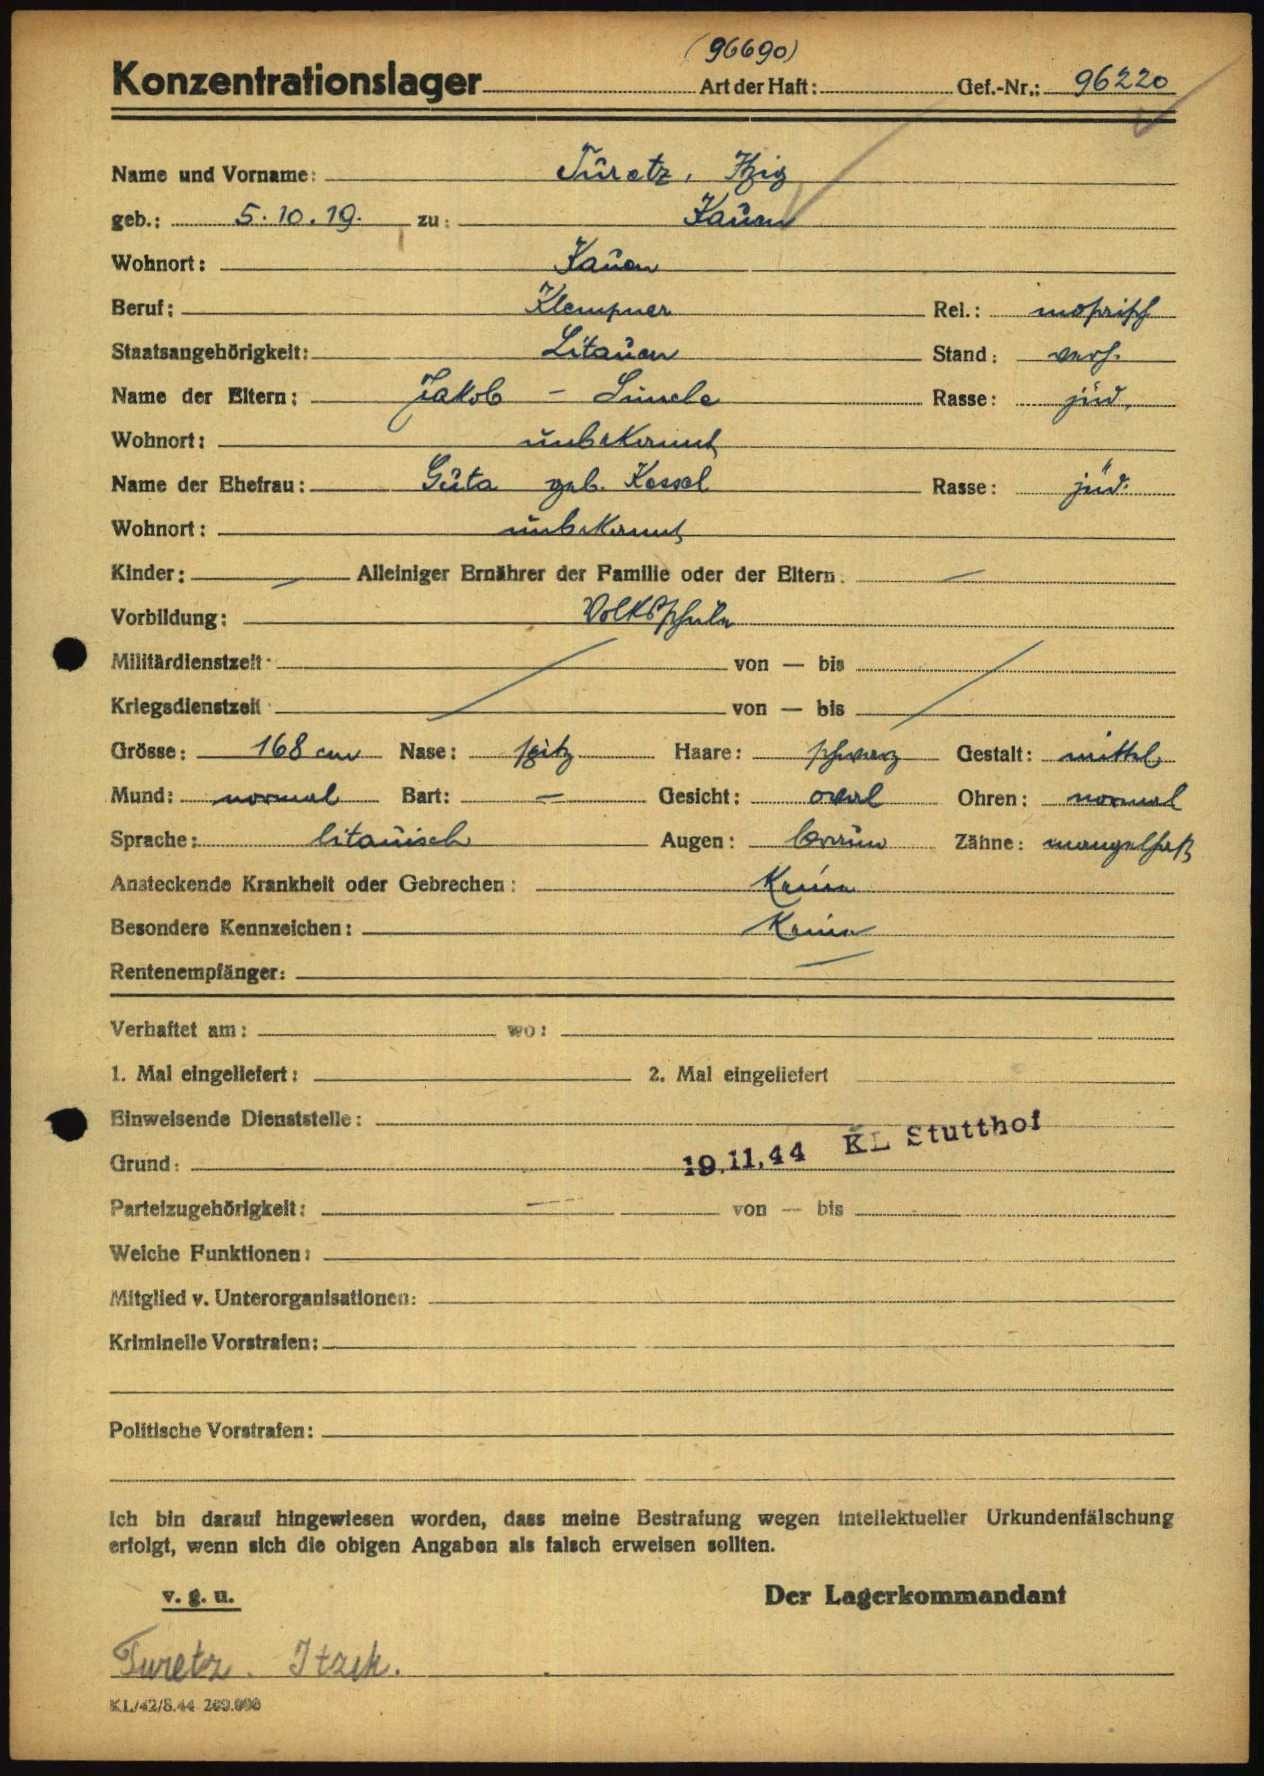 (96690)
Konzentrationslager Art der Haft: Gef.-Nr.: 96220
Name und Vorname: Turetz, Itzig
geb.: 5.10.19. zu: Kauen
Wohnort: Kauen
Beruf: Klempner Rel.: mosaisch
Staatsangehörigkeit: Litauen Stand: verh.
Name der Eltern: Jakob – Rasse: jüd.
Wohnort: unbekannt
Name der Ehefrau: Guta geb. Kessel Rasse: jüd.
Wohnort: unbekannt
Kinder: — Alleiniger Ernährer der Familie oder der Eltern: —
Vorbildung: Volksschule
Militärdienstzeit: von — bis
Kriegsdienstzeit: von — bis
Grösse: 168 cm Nase: spitz Haare: schwarz Gestalt: mittel
Mund: normal Bart: — Gesicht: oval Ohren: normal
Sprache: litauisch Augen: braun Zähne: mangelhaft
Ansteckende Krankheit oder Gebrechen: Keine
Besondere Kennzeichen: Keine
Rentenempfänger: —
Verhaftet am: wo:
1. Mal eingeliefert: 2. Mal eingeliefert
Einweisende Dienststelle:
Grund: 19.11.44 KL Stutthof
Parteizugehörigkeit: — von — bis
Welche Funktionen:
Mitglied v. Unterorganisationen:
Kriminelle Vorstrafen:
Politische Vorstrafen:
Ich bin darauf hingewiesen worden, dass meine Bestrafung wegen intellektueller Urkundenfälschung
erfolgt, wenn sich die obigen Angaben als falsch erweisen sollten.
v. g. u. Der Lagerkommandant
Turetz. Itzik.
KL/42/8.44 200.000